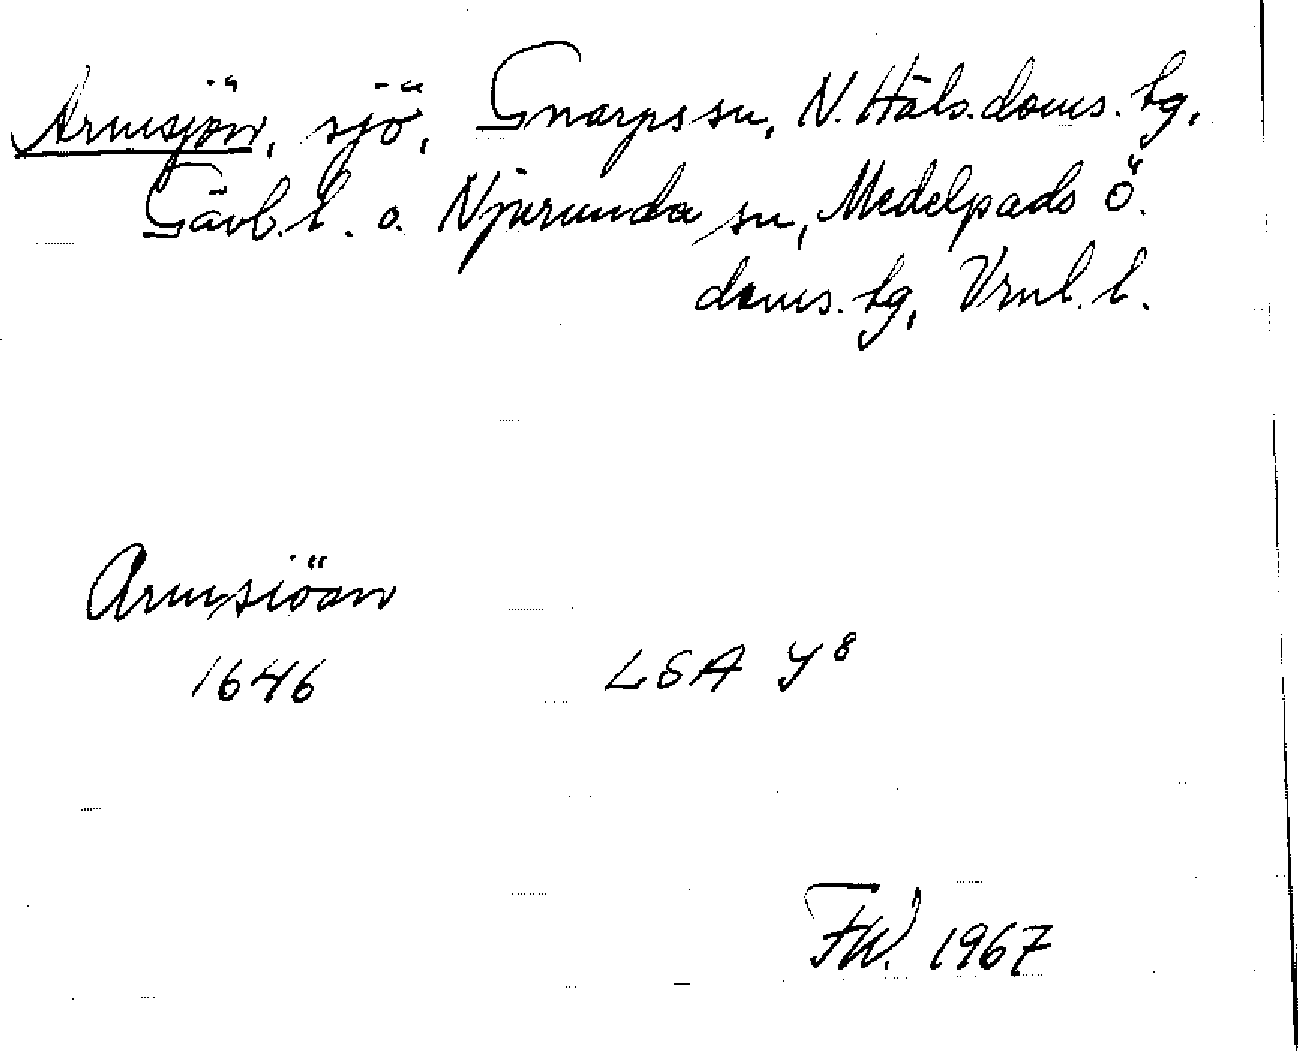 Armsjön, sjö, Gnarps sn, N. Häls. doms. tg,
Gävl. l. o. Njurunda sn, Medelpads ö.
doms. tg, Vrnl. l.
Armsiöan
1646 LSA Y8
FW. 1967